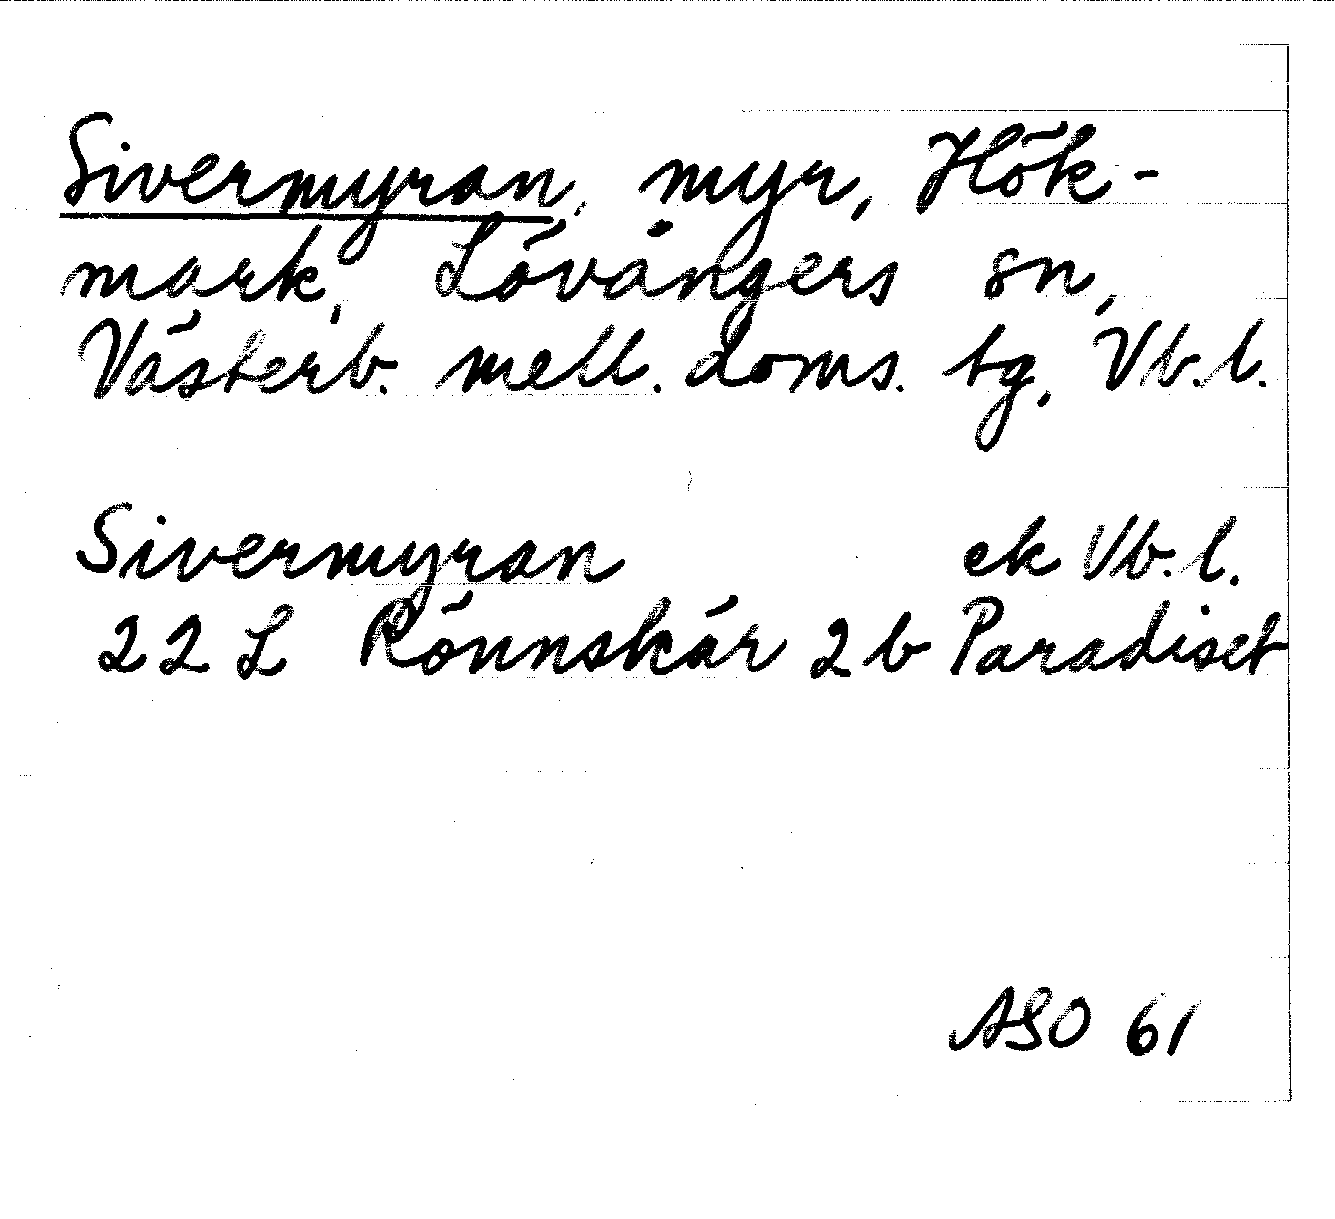 Sivermyran, myr, Hök-
mark, Lövångers sn,
Västerb. mell. doms. tg, Vb.l.
Sivermyran ek Vb.l.
22 L Rönnskär 2 b Paradiset
ASO 61